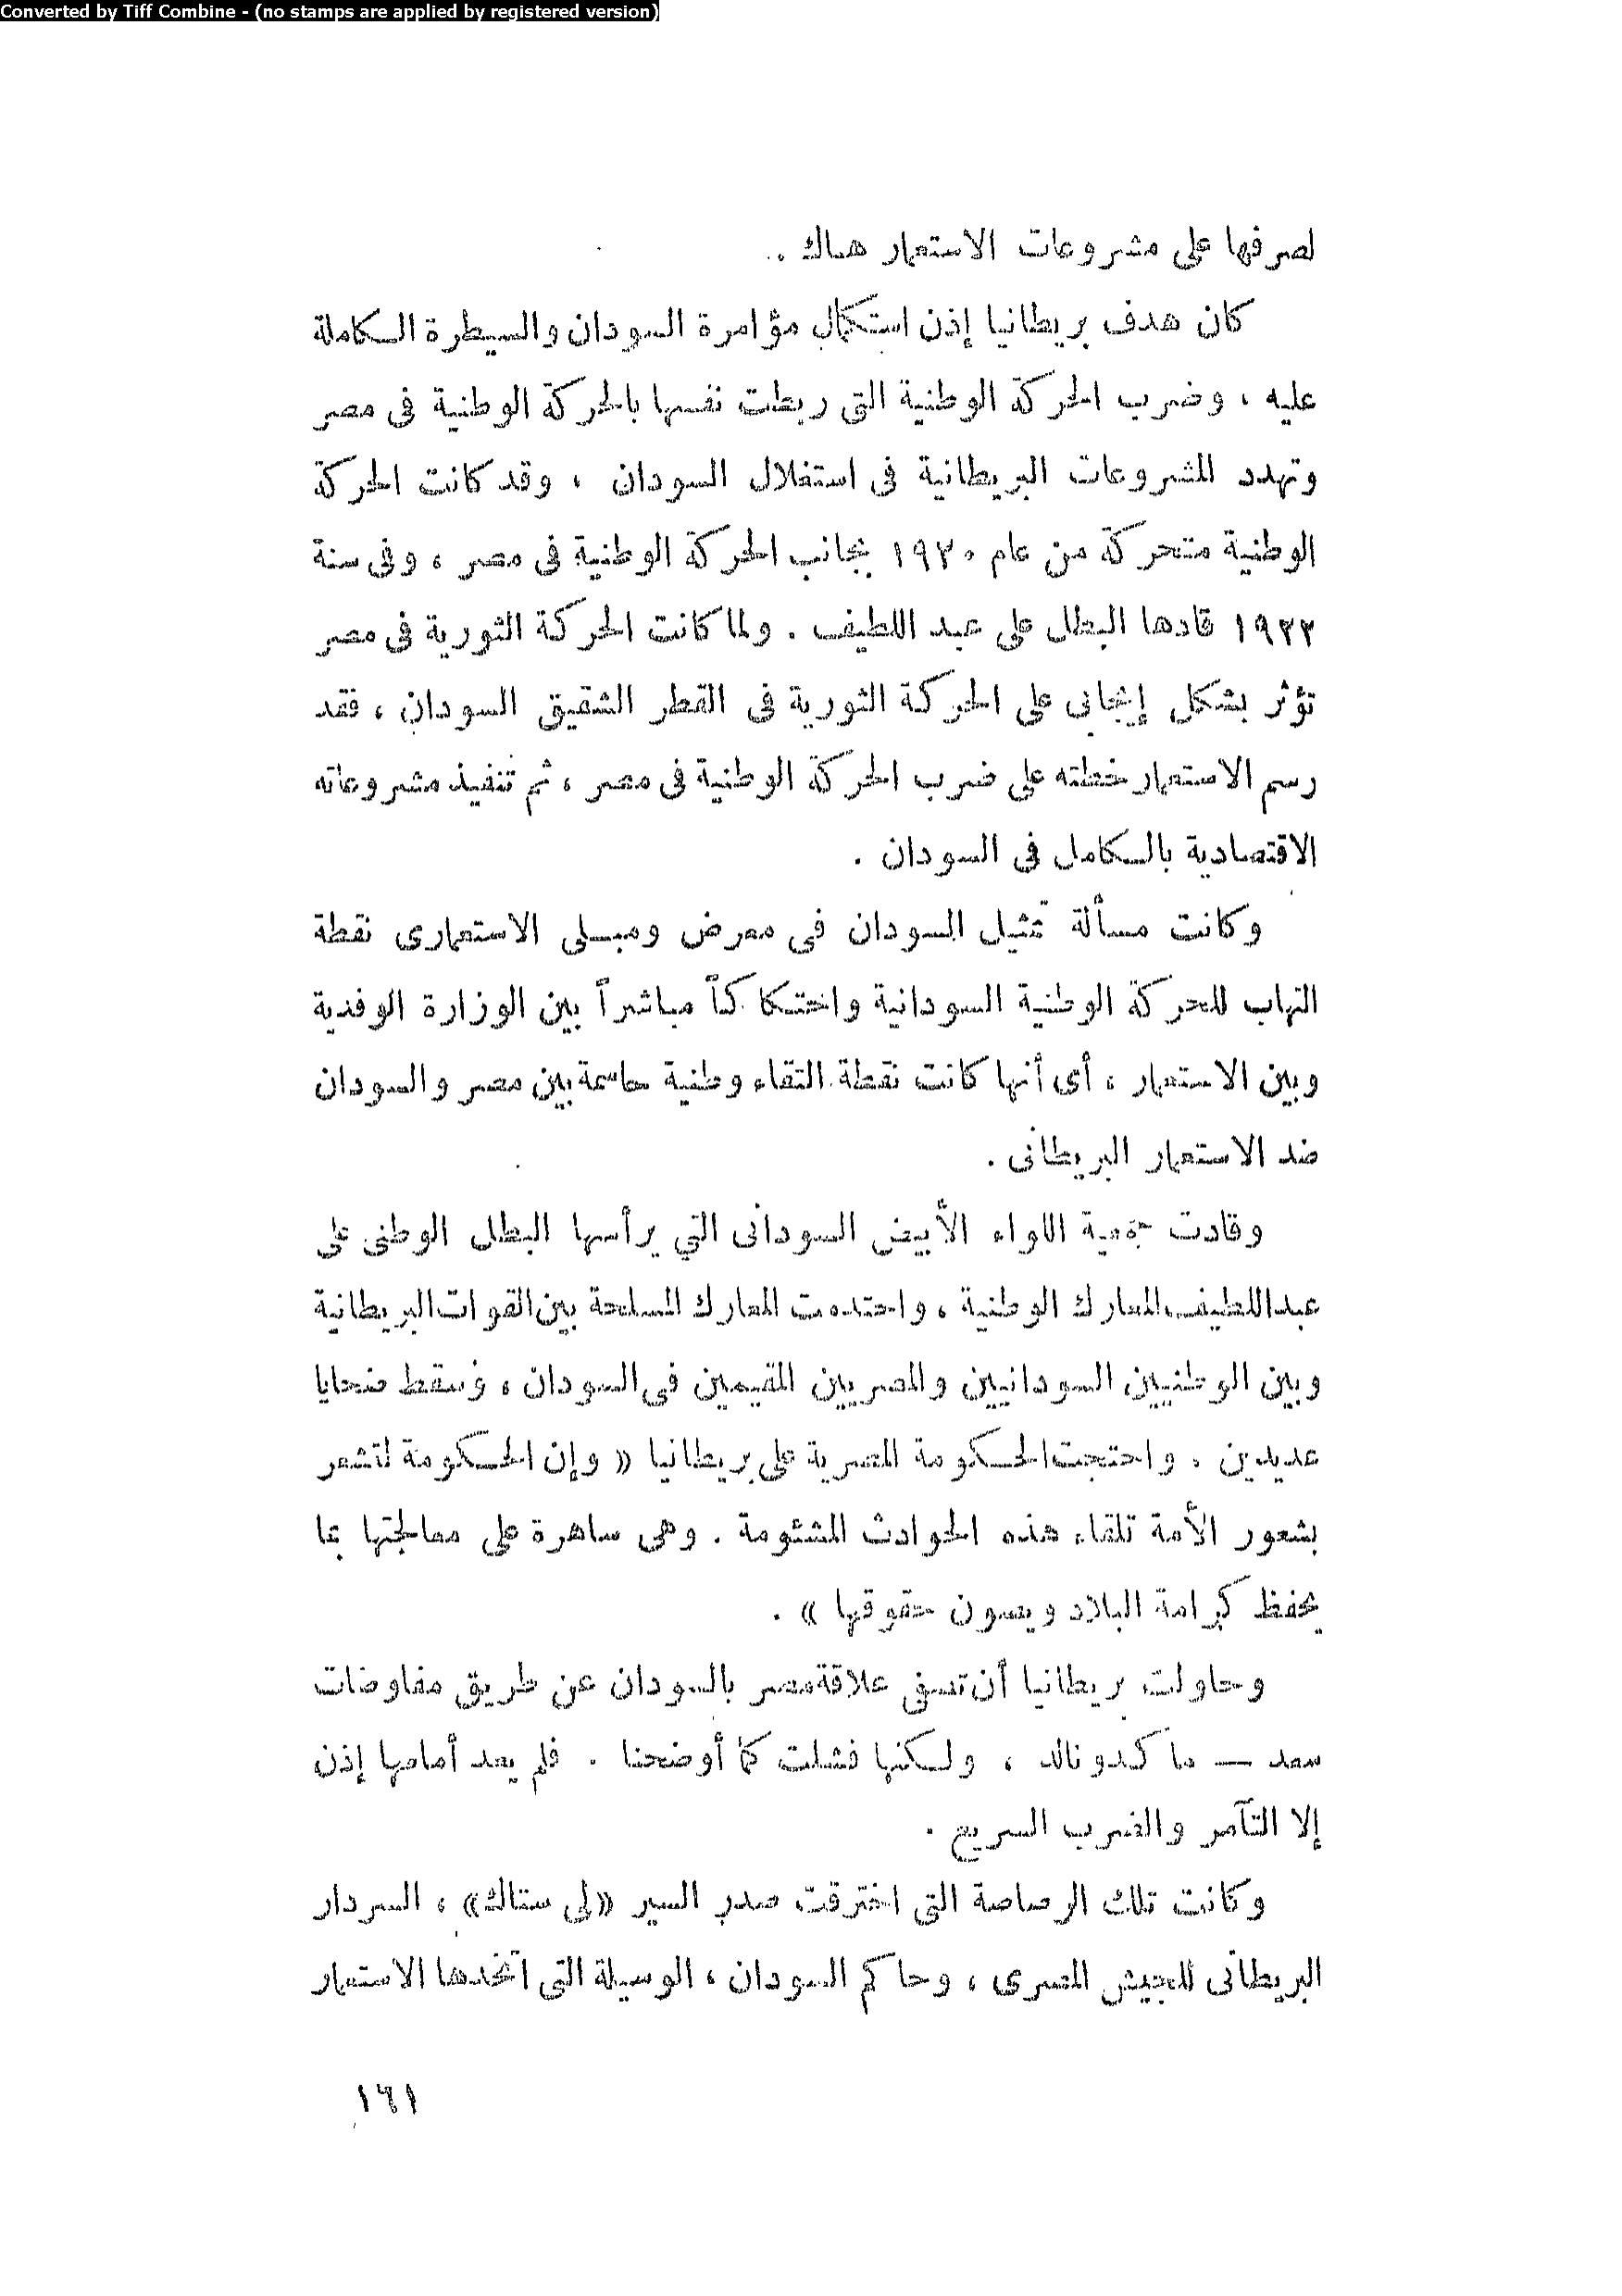 Converted by Tiff Combine - (no stamps are applied by registered version)
لصرفها على مشروعات الاستعمار هناك .
كان هدف بريطانيا إذن استكمال مؤامرة السودان والسيطرة الكاملة
عليه ، وضرب الحركة الوطنية التى ربطت نفسها بالحركة الوطنية فى مصر
وتهدد المشروعات البريطانية فى استغلال السودان ، وقد كانت الحركة
الوطنية متحركة من عام ١٩٢٠ بجانب الحركة الوطنية فى مصر ، وفى سنة
١٩٢٢ قادها البطل على عبد اللطيف . ولما كانت الحركة الثورية فى مصر
تؤثر بشكل إيجابى على الحركة الثورية فى القطر الشقيق السودان ، فقد
رسم الاستعمار خطته على ضرب الحركة الوطنية فى مصر ، ثم تنفيذ مشروعاته
الاقتصادية بالكامل فى السودان .
وكانت مسألة تمثيل السودان فى معرض ومبلى الاستعمارى نقطة
التهاب للحركة الوطنية السودانية واحتكاكاً مباشراً بين الوزارة الوفدية
وبين الاستعمار ، أى أنها كانت نقطة التقاء وطنية حاسمة بين مصر والسودان
ضد الاستعمار البريطانى .
وقادت جمعية اللواء الأبيض السودانى التي يرأسها البطل الوطنى على
عبد اللطيف المعارك الوطنية ، واحتدمت المعارك المسلحة بين القوات البريطانية
وبين الوطنيين السودانيين والمصريين المقيمين فى السودان ، وسقط ضحايا
عديدين . واحتجت الحكومة المصرية على بريطانيا « وإن الحكومة لتشعر
بشعور الأمة تلقاء هذه الحوادث المشئومة . وهى ساهرة على معالجتها بما
يحفظ كرامة البلاد ويصون حقوقها » .
وحاولت بريطانيا أن تصفى علاقة مصر بالسودان عن طريق مفاوضات
سعد — ماكدونالد ، ولكنها فشلت كما أوضحنا . فلم يعد أمامها إذن
إلا التآمر والضرب السريع .
وكانت تلك الرصاصة التى اخترقت صدر السير «لى ستاك» ، السردار
البريطانى للجيش المصرى ، وحاكم السودان ، الوسيلة التى اتخذها الاستعمار
١٦١